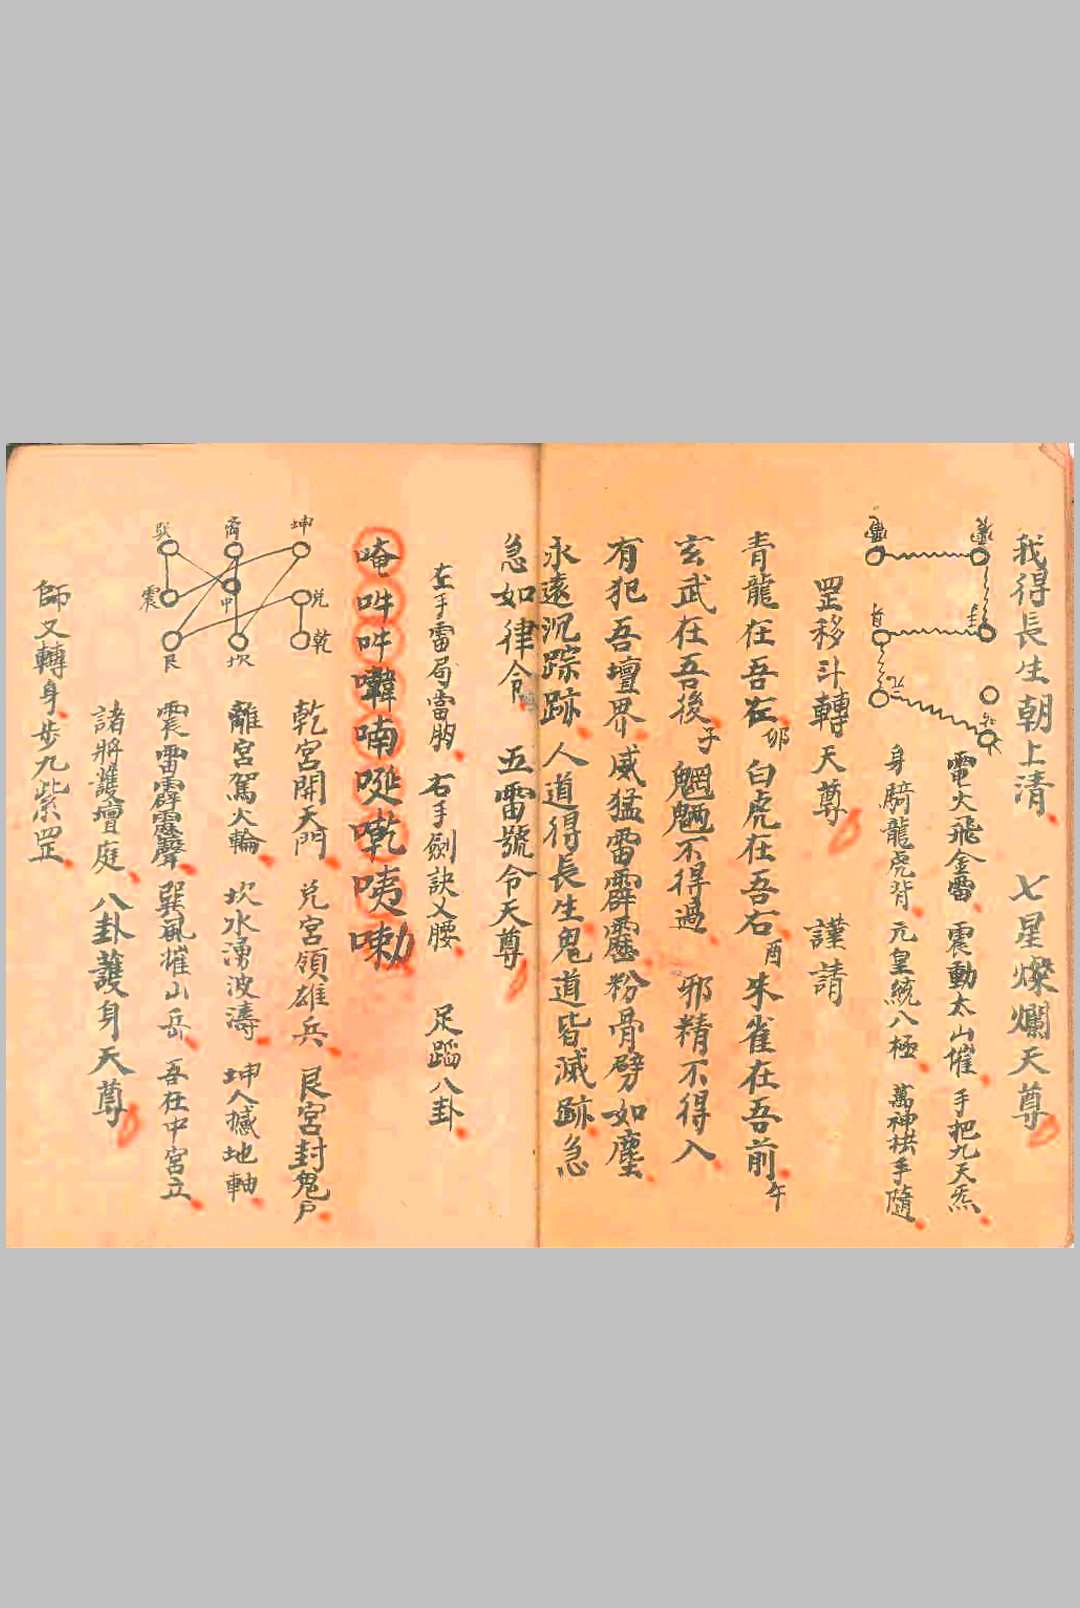 我得長生朝上清 七星燦爛天尊
電火飛金雷 震動太山摧 手把九天炁
身騎龍虎背 元皇統八極 萬神拱手隨
罡移斗轉天尊 謹請
青龍在吾左卯 白虎在吾右酉 朱雀在吾前午
玄武在吾後子 魍魎不得過 邪精不得入
有犯吾壇界 威猛雷霹靂 粉骨劈如塵
永遠沉踪跡 人道得長生 鬼道皆滅跡 急
急如律令 五雷號令天尊
左手雷局當胸 右手劍訣乂腰 足蹈八卦
唵吽吽
坤 兌 乾
离 中 坎
巽 震 艮
乾宮開天門 兌宮領雄兵 艮宮封鬼戶
離宮駕火輪 坎水湧波濤 坤人撼地軸
震雷霹靂聲 巽風摧山岳 吾在中宮立
諸將護壇庭 八卦護身天尊
師又轉身步九紫罡